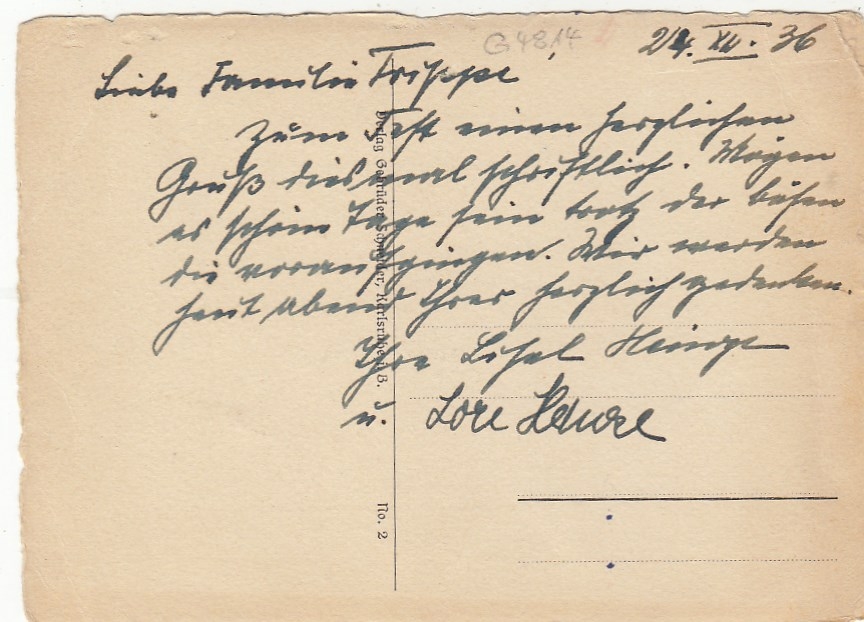 G4814
24. XII. 36
Liebe Familie Trippe,
Zum Fest einen herzlichen
Gruß diesmal schriftlich. Mögen
es schöne Tage sein trotz der bösen
die vorausgingen. Wir werden
heut Abend Ihrer herzlich gedenken.
Ihre Lisel
u. Lore
Verlag Gebrüder Schneider, Karlsruhe i. B.
No. 2